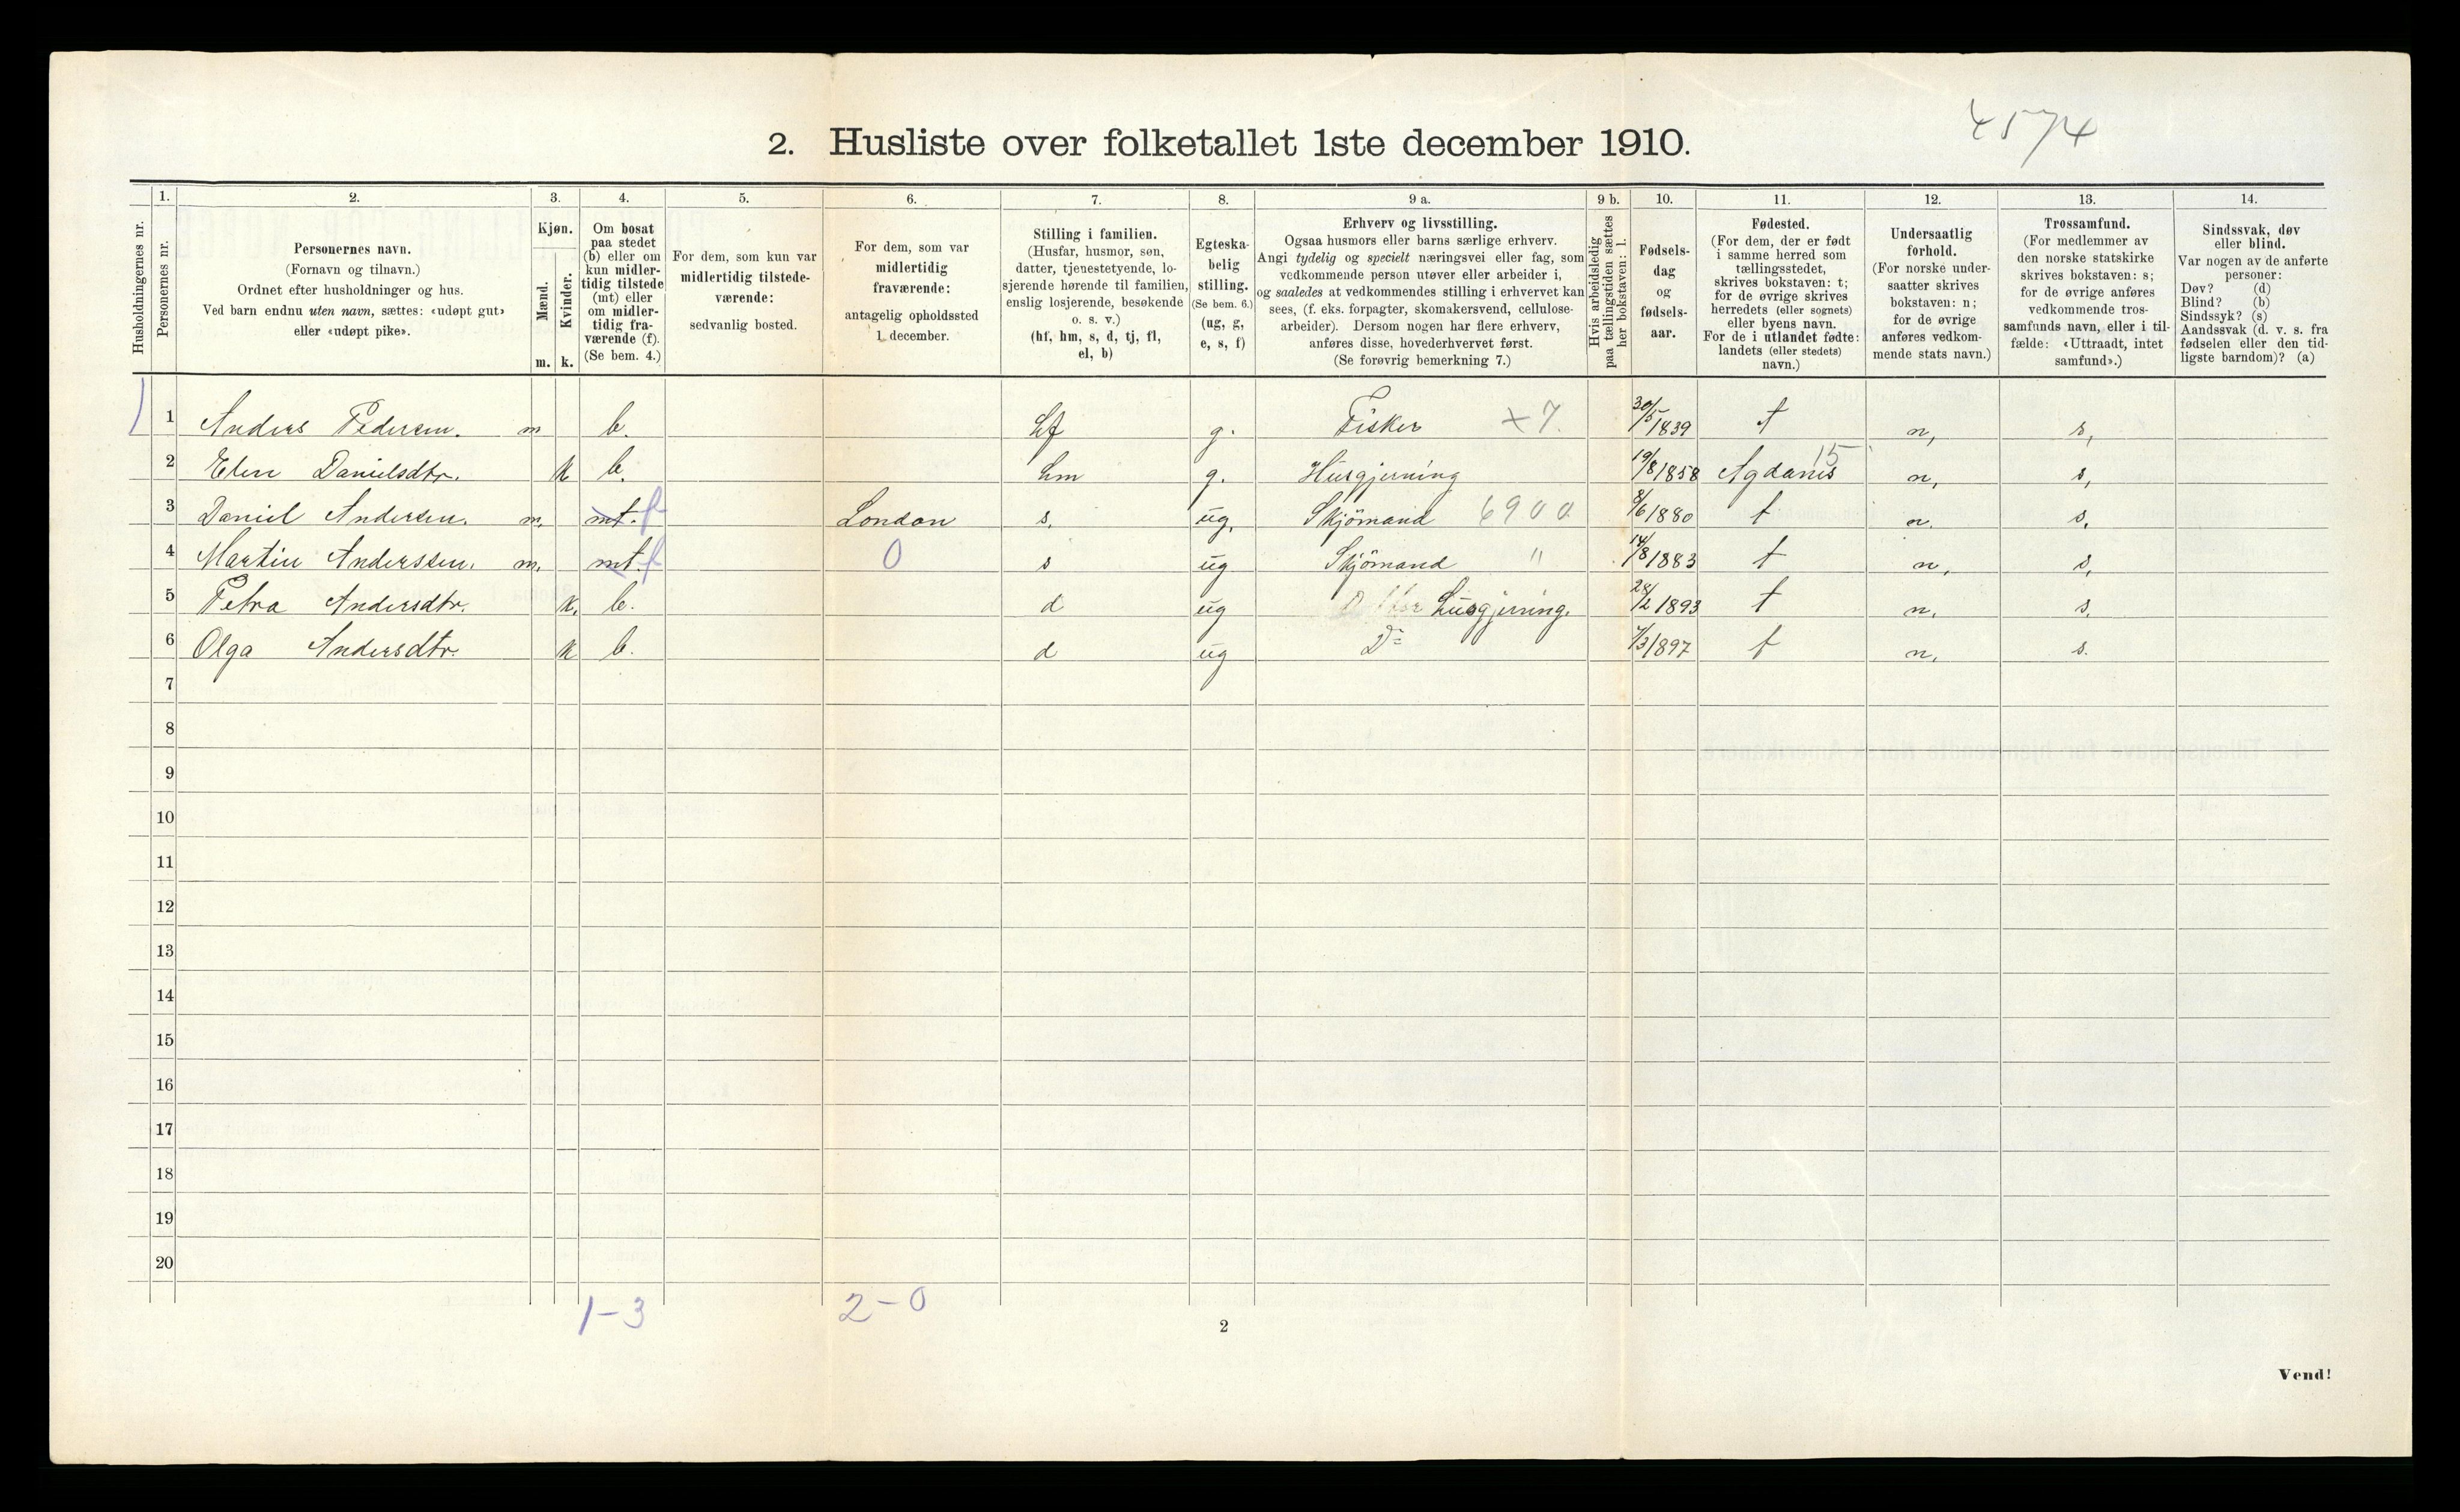 4574
2. Husliste over folketallet 1ste december 1910.
Husholdningernes nr.
1.
Personernes nr.
2.
Personernes navn.
(Fornavn og tilnavn.)
Ordnet efter husholdninger og hus.
Ved barn endnu uten navn, sættes: «udøpt gut»
eller «udøpt pike».
3.
Kjøn.
Mænd.
m.
Kvinder.
k.
4.
Om bosat
paa stedet
(b) eller om
kun midler-
tidig tilstede
(mt) eller
om midler-
tidig fra-
værende (f).
(Se bem. 4.)
5.
For dem, som kun var
midlertidig tilstede-
værende:
sedvanlig bosted.
6.
For dem, som var
midlertidig
fraværende:
antagelig opholdssted
1. december.
7.
Stilling i familien.
(Husfar, husmor, søn,
datter, tjenestetyende, lo-
sjerende hørende til familien,
enslig losjerende, besøkende
o. s. v.)
(hf, hm, s, d, tj, fl,
el, b)
8.
Egteska-
belig
stilling.
(Se bem. 6.)
(ug, g,
e, s, f)
9 a.
Erhverv og livsstilling.
Ogsaa husmors eller barns særlige erhverv.
Angi tydelig og specielt næringsvei eller fag, som
vedkommende person utøver eller arbeider i,
og saaledes at vedkommendes stilling i erhvervet kan
sees, (f. eks. forpagter, skomakersvend, cellulose-
arbeider). Dersom nogen har flere erhverv,
anføres disse, hovederhvervet først.
(Se forøvrig bemerkning 7.)
9 b.
Hvis arbeidsledig
paa tællingstiden sættes
her bokstaven: l.
10.
Fødsels-
dag
og
fødsels-
aar.
11.
Fødested.
(For dem, der er født
i samme herred som
tællingsstedet,
skrives bokstaven: t;
for de øvrige skrives
herredets (eller sognets)
eller byens navn.
For de i utlandet fødte:
landets (eller stedets)
navn.)
12.
Undersaatlig
forhold.
(For norske under-
saatter skrives
bokstaven: n;
for de øvrige
anføres vedkom-
mende stats navn.)
13.
Trossamfund.
(For medlemmer av
den norske statskirke
skrives bokstaven: s;
for de øvrige anføres
vedkommende tros-
samfunds navn, eller i til-
fælde: «Uttraadt, intet
samfund».)
14.
Sindssvak, døv
eller blind.
Var nogen av de anførte
personer:
Døv? (d)
Blind? (b)
Sindssyk? (s)
Aandssvak (d. v. s. fra
fødselen eller den tid-
ligste barndom)? (a)
1 Anders Pedersen. m b. hf g. Fisker x 7. 30/5 1839 t n, s,
2 Elen Danielsdtr. k b. hm g. Husgjerning 19/8 1858 Agdanes 15 n, s,
3 Daniel Andersen. m. mt. f London s. ug. Skjömand 6900 8/6 1880 t n. s.
4 Martin Anderssen. m. mt. f 0 s ug Skjömand " 14/8 1883 t n, s,
5 Petra Andersdtr. k. b. d ug Husgjerning. 28/2 1893 t n. s.
6 Olga Andersdtr. k b. d ug Do 7/3 1897 t n, s.
7
8
9
10
11
12
13
14
15
16
17
18
19
20
1-3 2-0
2
Vend!